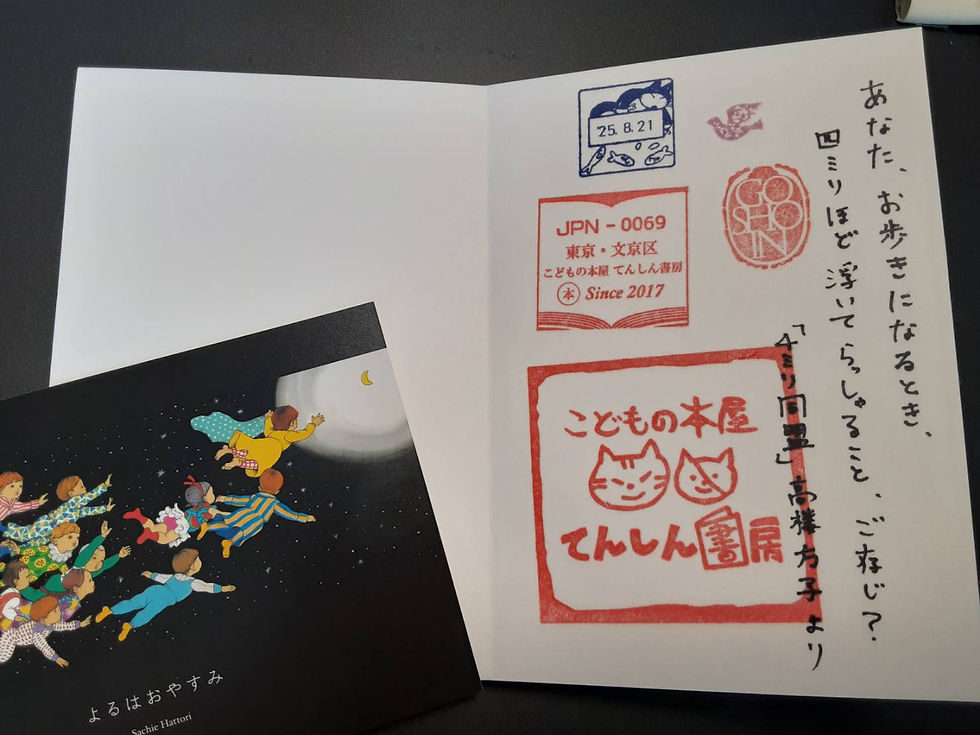 あなた、お歩きになるとき、
四ミリほど浮いてらっしゃること、ご存じ?
「4ミリ同盟」高楼方子より
'25.8.21
GO
SHO
IN
JPN-0069
東京・文京区
こどもの本屋 てんしん書房
本 Since 2017
こどもの本屋
てんしん書房
よるはおやすみ
Sachie Hattori